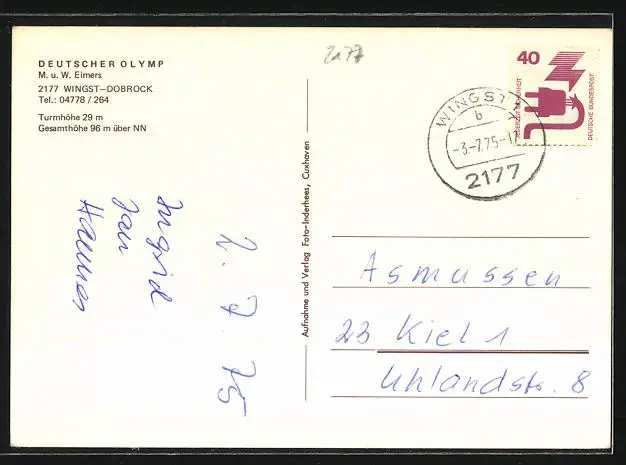 DEUTSCHER OLYMP
M. u. W. Eimers
2177 WINGST—DOBROCK
Tel.: 04778 / 264
Turmhöhe 29 m
Gesamthöhe 96 m über NN
2177
40
JEDERZEIT SICHERHEIT
DEUTSCHE BUNDESPOST
WINGST
b
-3.-7.75-17
2177
Aufnahme und Verlag Foto-Inderthees, Cuxhaven
2. 7. 75
Ingrid
Jan
Hannes
Asmussen
23 Kiel 1
Uhlandstr. 8